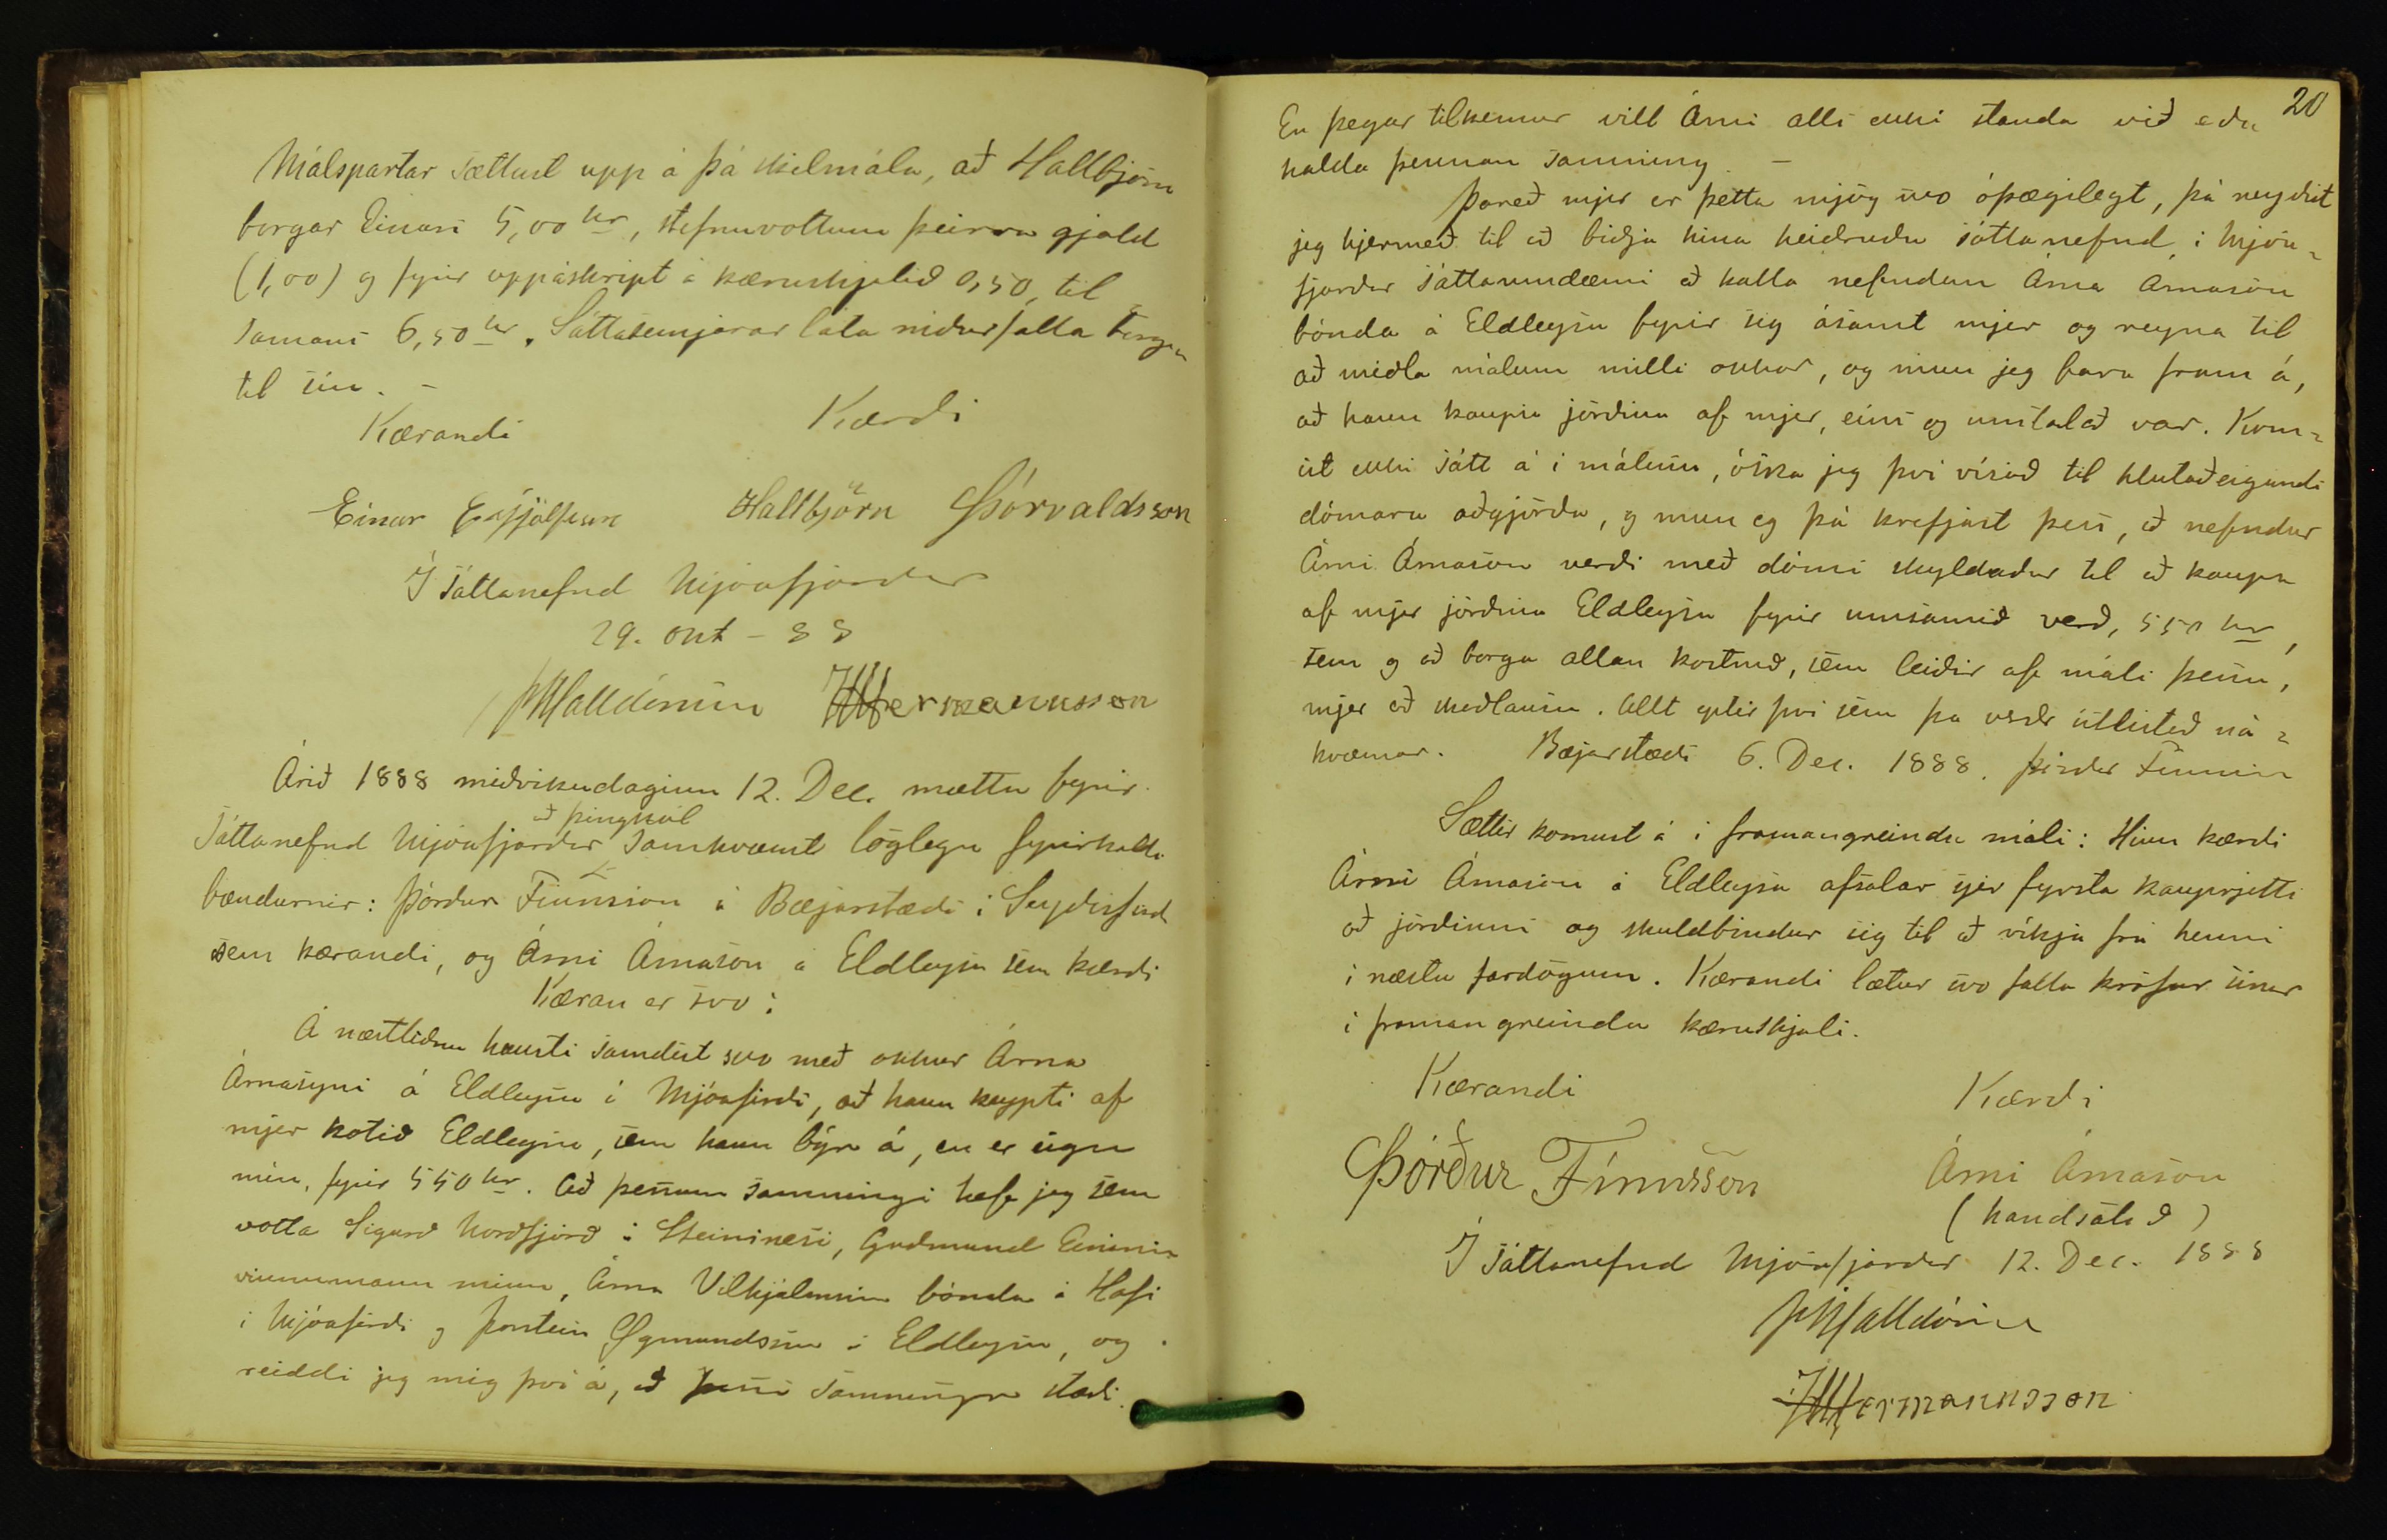 Málspartar sættust upp á þá skilmála, að Hallbjörn
borgar Einari 5,00 kr, stefnuvottum þeirra gjald
(1,00) og fyrir uppáskript á kæruskjalið 0,50, til
samans 6,50 kr. Sáttasemjarar láta niðurfalla borgun
til sín. –
Kærandi Kærði
Einar Eyjólfsson Hallbjörn Þórvaldsson
Í sáttanefnd Mjóafjarðar
29. okt – 88
Halldórsson Hermannsson
Árið 1888 miðvikudaginn 12. Dec. mættu fyrir
að þinghól
sáttanefnd Mjóafjarðar samkvæmt löglegu fyrirkalli
bændurnir: Þórður Finnsson á Bæjarstæði í Seyðisfirði
sem kærandi, og Árni Árnason á Eldleysu sem kærði
Kæran er svo:
Á næstliðnu hausti samdist svo með okkur Árna
Árnasyni á Eldleysu í Mjóafirði, að hann keypti af
mjer kotið Eldleysu, sem hann býr á, en er eign
mín, fyrir 550 kr. Að þessum samningi hefi jeg sem
votta Sigurð Norðfjörð í Steinsnesi, Guðmund
vinnumann minn, Árna Vilhjálmsson bónda á Hofi
í Mjóafirði og Þorstein Ögmundsson á Eldleysu, og
reiddi jeg mig því á, að þessi samningur stæði.
20
En þegar tilkemur vill Árni alls ekki standa við eða
halda þennan samning –
Þareð mjer er þetta mjög svo óþægilegt, þá neyðist
jeg hjermeð til að biðja hina heiðruðu sáttanefnd í Mjóa-
fjarðar sáttaumdæmi að kalla nefndan Árna Árnason
bónda á Eldleysu fyrir sig ásamt mjer og reyna til
að miðla málum milli okkar, og mun jeg fara fram á,
að hann kaupi jörðina af mjer, eins og umtalað var. Kom-
ist ekki sátt á í málinu, óska jeg því vísað til hlutaðeigandi
dómara aðgjörða, og mun eg þá krefjast þess, að nefndur
Árni Árnason verði með dómi skyldaður til að kaupa
af mjer jörðina Eldleysu fyrir umsamið verð, 550 kr,
sem og að borga allan kostnað, sem leiðir af máli þessu,
mjer að skaðlausu. Allt eptir því sem þá verðr útlistað ná-
kvæmar. Bæjarstæði 6. Dec. 1888. Þórður Finnsson
Sættir komust á í framangreindu máli: Hinn kærði
Árni Árnason á Eldleysu afsalar sjer fyrsta kauprjetti
að jörðinni og skuldbindur sig til að víkja frá henni
í næstu fardögum. Kærandi lætur svo falla kröfur sínar
í framangreindu kæruskjali.
Kærandi Kærði
Þórður Finnsson Árni Árnason
(handsalað)
Í sáttanefnd Mjóafjarðar 12. Dec. 1888
Halldórsson
Hermannsson